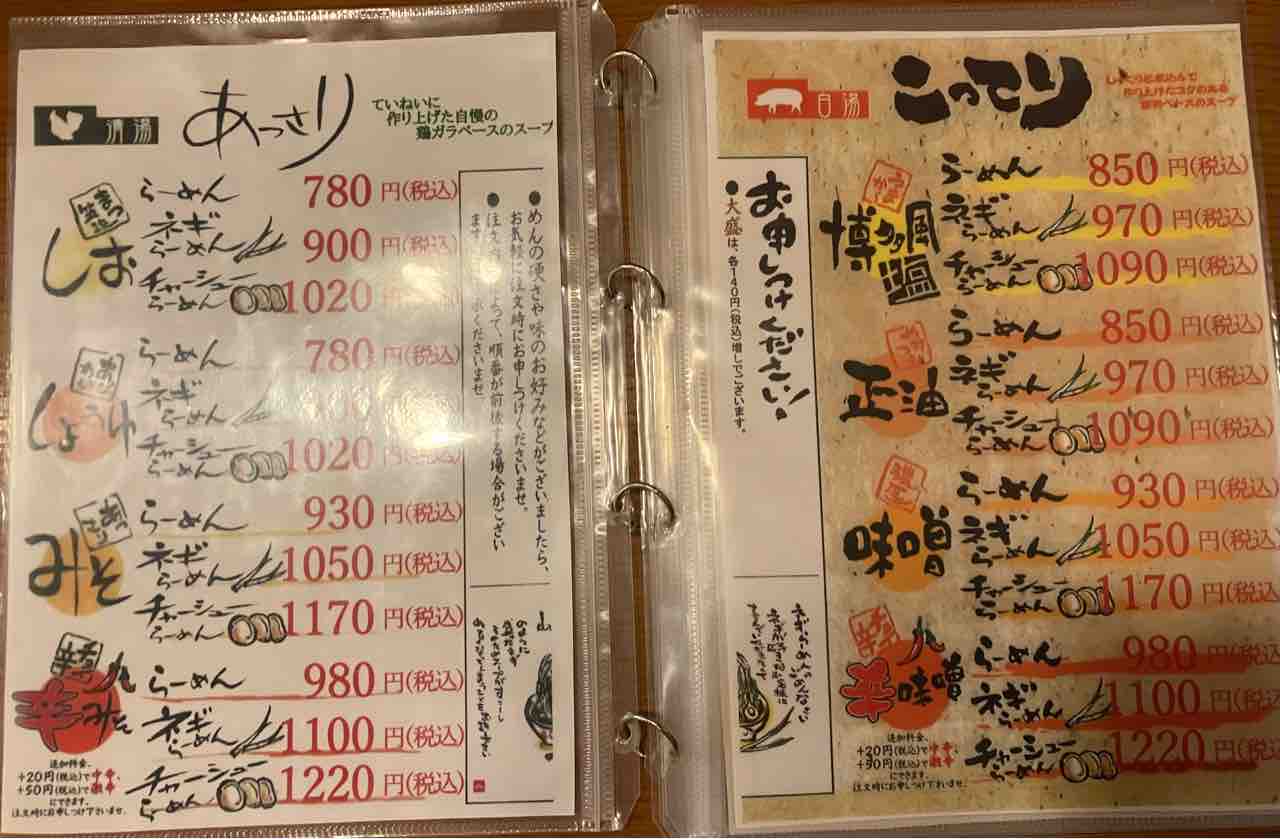 清湯
あっさり
ていねいに
作り上げた自慢の
鶏ガラベースのスープ
しお
らーめん 780円(税込)
ネギらーめん 900円(税込)
チャーシューらーめん 1020円(税込)
しょうゆ
らーめん 780円(税込)
ネギらーめん
チャーシューらーめん 1020円(税込)
あっさり
みそ
らーめん 930円(税込)
ネギらーめん 1050円(税込)
チャーシューらーめん 1170円(税込)
辛みそ
らーめん 980円(税込)
ネギらーめん 1100円(税込)
チャーシューらーめん 1220円(税込)
追加料金、
+20円(税込)で中辛、
+50円(税込)で激辛
にできます。
注文時にお申しつけ下さいませ。
●めんの硬さや味のお好みなどがございましたら、
お気軽に注文時にお申しつけくださいませ。
●注文 よって、順番が前後する場合がござい
ます 承くださいませ
白湯
こってり
お申しつけください!
●大盛は、各140円(税込)増しでございます。
博多風塩
らーめん 850円(税込)
ネギらーめん 970円(税込)
チャーシューらーめん 1090円(税込)
正油
らーめん 850円(税込)
ネギらーめん 970円(税込)
チャーシューらーめん 1090円(税込)
味噌
らーめん 930円(税込)
ネギらーめん 1050円(税込)
チャーシューらーめん 1170円(税込)
辛味噌
らーめん 980円(税込)
ネギらーめん 1100円(税込)
チャーシューらーめん 1220円(税込)
追加料金、
+20円(税込)で中辛、
+50円(税込)で激辛
にできます。
注文時にお申しつけ下さいませ。